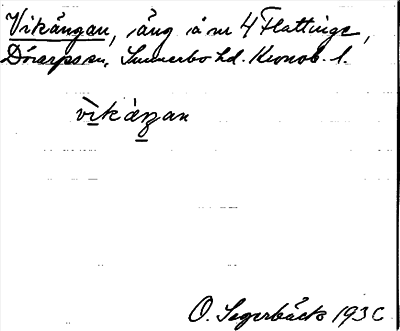 Vikängan, äng å nr 4 Flattinge,
Dörarps sn. Sunnerbo hd. Kronob. l.
vìkáŋan
O. Segerbäck 1930